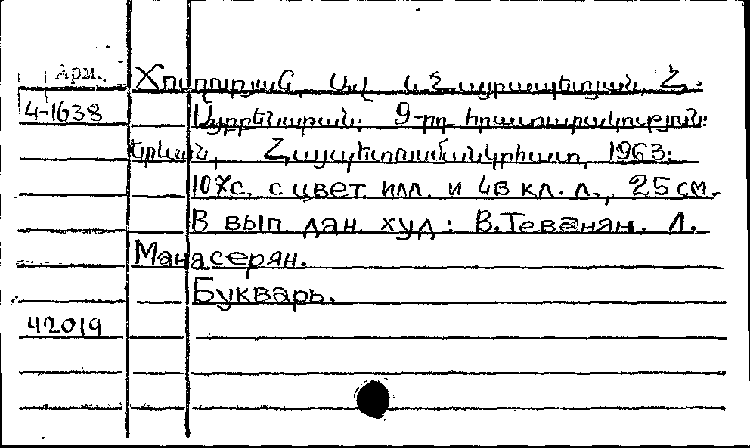 Арм.
Խուդոյան, Ավ և Հայրապետյան, Հ.
4-1638 Այբբենարան: 9-րդ հրատարակություն:
Երևան, Հայպետուսմանկհրատ, 1963:
107с. с цвет илл. и 4в кл. л., 25 см.
В вып. дан. худ: В.Теванян. Л.
Манасерян.
Букварь.
42019